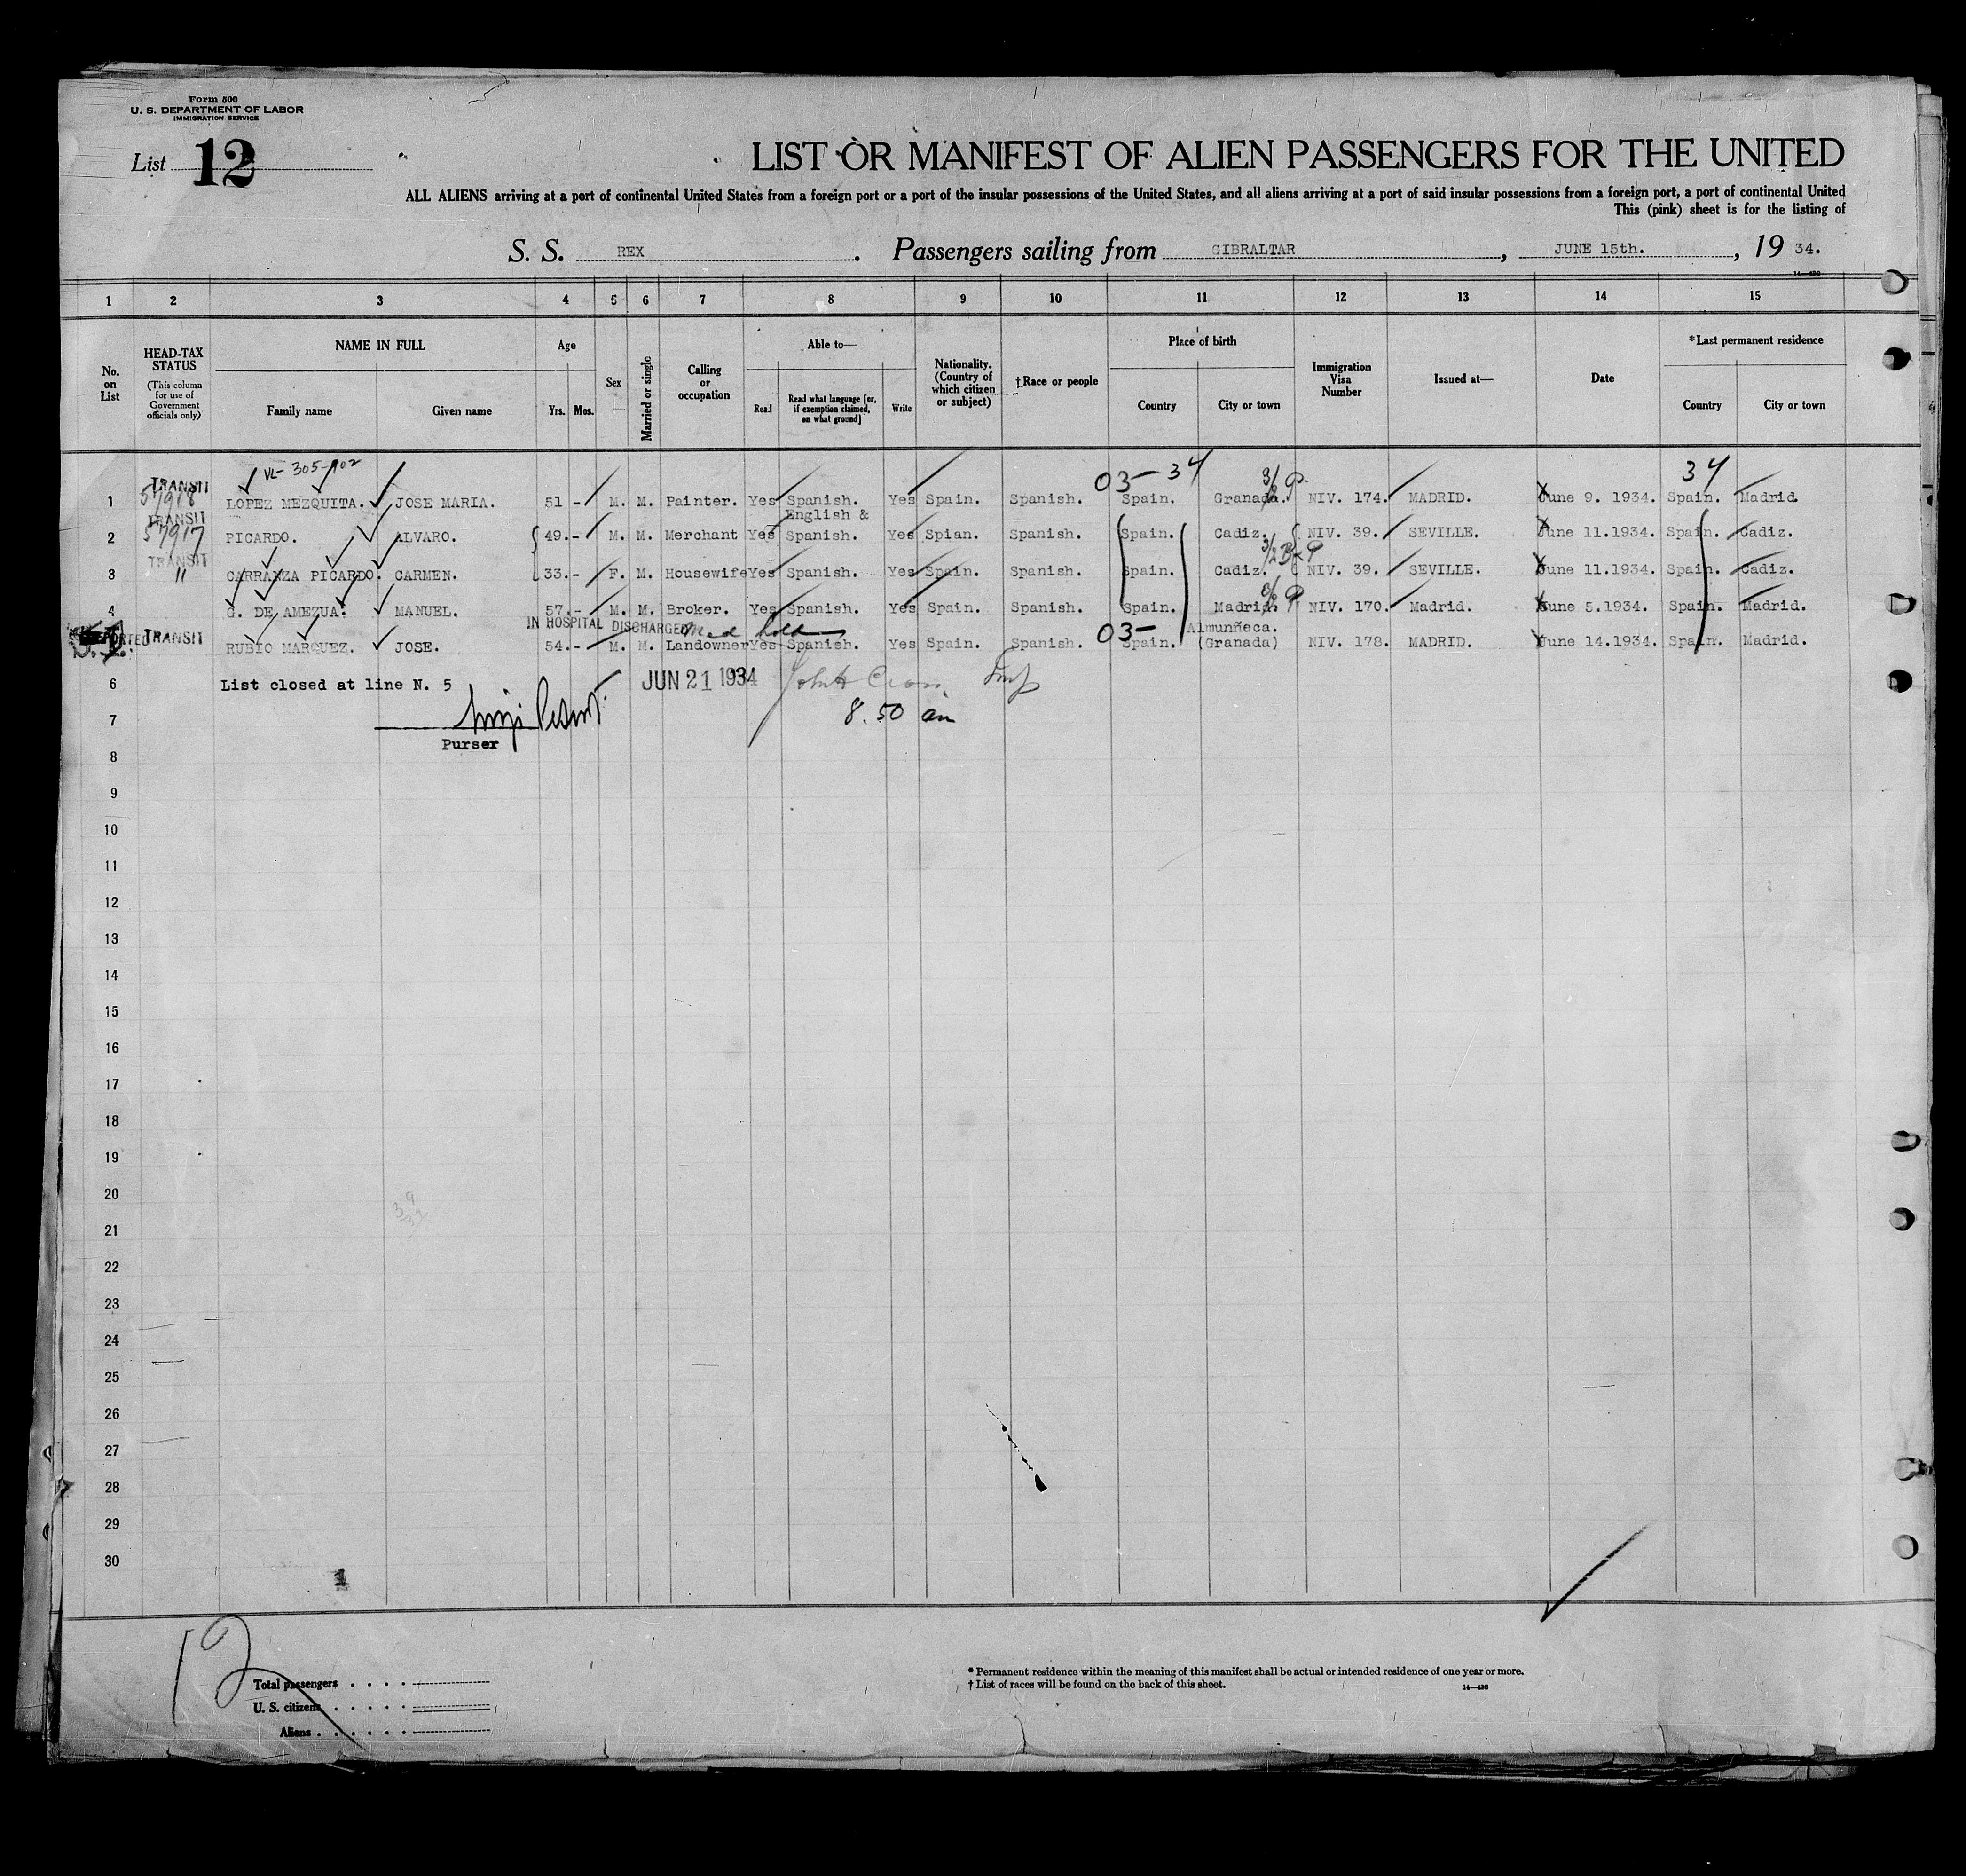 Form 500
U. S. DEPARTMENT OF LABOR
IMMIGRATION SERVICE
List 12
LIST OR MANIFEST OF ALIEN PASSENGERS FOR THE UNITED
ALL ALIENS arriving at a port of continental United States from a foreign port or a port of the insular possessions of the United States, and all aliens arriving at a port of said insular possessions from a foreign port, a port of continental United
This (pink) sheet is for the listing of
S. S. REX. Passengers sailing from GIBRALTAR, JUNE 15th., 19 34.
14—430
1 2 3 4 5 6 7 8 9 10 11 12 13 14 15
No. on List
HEAD-TAX STATUS (This column for use of Government officials only)
NAME IN FULL
Family name Given name
Age
Yrs. Mos.
Sex
Married or single
Calling or occupation
Able to—
Read Read what language [or, if exemption claimed, on what ground] Write
Nationality. (Country of which citizen or subject)
† Race or people
Place of birth
Country City or town
Immigration Visa Number
Issued at—
Date
*Last permanent residence
Country City or town
VL- 305-902
03- 34 34
TRANSIT
1 57918 LOPEZ MEZQUITA. JOSE MARIA. 51 - M. M. Painter. Yes Spanish. Yes Spain. Spanish. Spain. Granada. NIV. 174. MADRID. June 9. 1934. Spain. Madrid
TRANSIT English &
2 57917 PICARDO. ALVARO. 49.- M. M. Merchant Yes Spanish. Yes Spian. Spanish. Spain. Cadiz. NIV. 39. SEVILLE. June 11.1934. Spain. Cadiz.
TRANSIT
3 " CARRANZA PICARDO. CARMEN. 33.- F. M. Housewife Yes Spanish. Yes Spain. Spanish. Spain. Cadiz. NIV. 39. SEVILLE. June 11.1934. Spain. Cadiz.
4 G. DE AMEZUA. MANUEL. 57.- M. M. Broker. Yes Spanish. Yes Spain. Spanish. Spain. Madrid. NIV. 170. Madrid. June 5.1934. Spain. Madrid.
IN HOSPITAL DISCHARGED Med hold 03- Almunñeca.
TRANSIT RUBIO MARQUEZ. JOSE. 54.- M. M. Landowner Yes Spanish. Yes Spain. Spanish. Spain. (Granada) NIV. 178. MADRID. June 14.1934. Spain. Madrid.
S.I.
6 List closed at line N. 5 JUN 21 1934
7 8.50 am
Purser
8
9
10
11
12
13
14
15
16
17
18
19
20
21
22
23
24
25
26
27
28
29
30
1
12
Total passengers
U. S. citizens
Aliens
* Permanent residence within the meaning of this manifest shall be actual or intended residence of one year or more.
† List of races will be found on the back of this sheet.
14—430